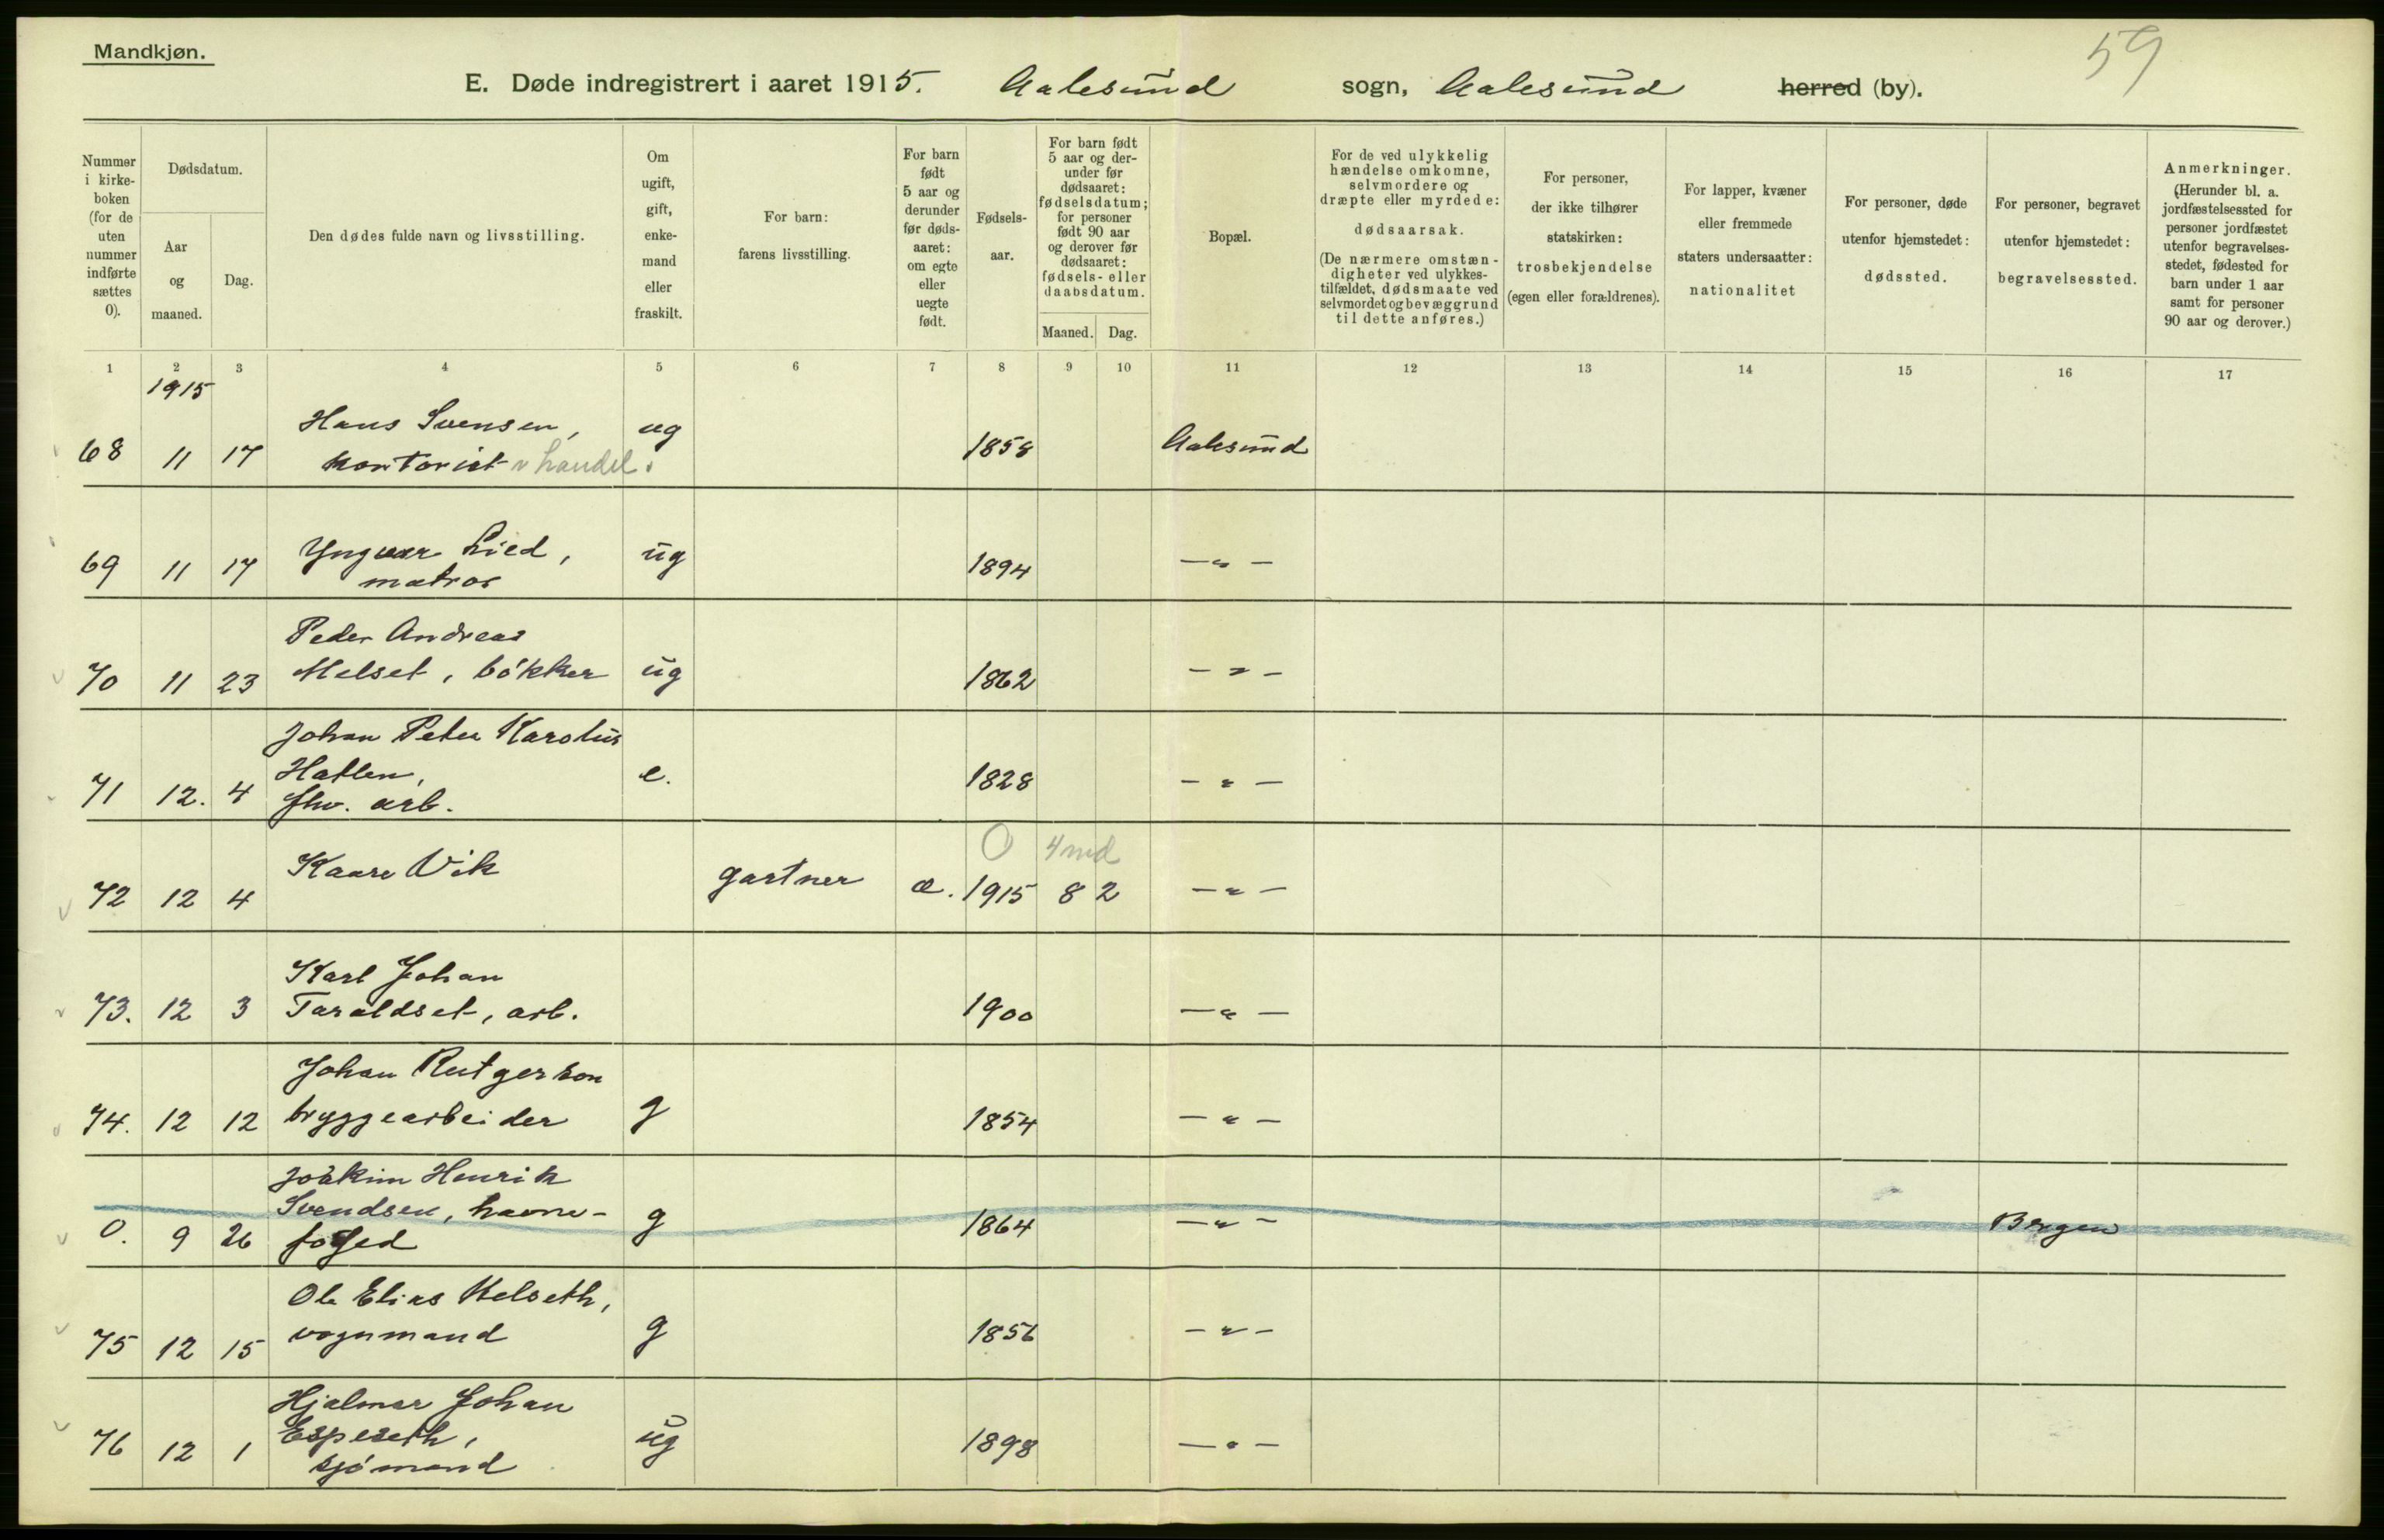 Mandkjøn.
59
E. Døde indregistrert i aaret 1915. Aalesund sogn, Aalesund herred (by).
Nummer
i kirke-
boken
(for de
uten
nummer
indførte
sættes
0).
Dødsdatum.
Aar
og
maaned.
Dag.
Den dødes fulde navn og livsstilling.
Om
ugift,
gift,
enke-
mand
eller
fraskilt.
For barn:
farens livsstilling.
For barn
født
5 aar og
derunder
før døds-
aaret:
om egte
eller
uegte
født.
Fødsels-
aar.
For barn født
5 aar og der-
under før
dødsaaret:
fødselsdatum;
for personer
født 90 aar
og derover før
dødsaaret:
fødsels- eller
daabsdatum.
Maaned. Dag.
Bopæl.
For de ved ulykkelig
hændelse omkomne,
selvmordere og
dræpte eller myrdede:
dødsaarsak.
(De nærmere omstæn-
digheter ved ulykkes-
tilfældet, dødsmaate ved
selvmordet og bevæggrund
til dette anføres.)
For personer,
der ikke tilhører
statskirken:
trosbekjendelse
(egen eller forældrenes).
For lapper, kvæner
eller fremmede
staters undersaatter:
nationalitet
For personer, døde
utenfor hjemstedet:
dødssted.
For personer, begravet
utenfor hjemstedet:
begravelsessted.
Anmerkninger.
(Herunder bl. a.
jordfæstelsessted for
personer jordfæstet
utenfor begravelses-
stedet, fødested for
barn under 1 aar
samt for personer
90 aar og derover.)
1 2 3 4 5 6 7 8 9 10 11 12 13 14 15 16 17
1915
Hans Svensen, ug
68 11 17 kontorist v handel. 1858 Aalesund
69 11 17 Yngvar Lied, ug 1894 — " —
matros
Peder Andreas
70 11 23 Melset, bøkker ug 1862 — " —
Johan Peter Karolus
Hatlen, e. 1828 — " —
71 12. 4 fhv. arb.
0 4 md
72 12 4 Kaare Vik gartner æ. 1915 8 2 — " —
Karl Johan
73. 12 3 Taraldset, arb. 1900 — " —
Johan Rutgerson
74. 12 12 bryggearbeider g 1854 — " —
Joakim Henrik
Svendsen, havne- g 1864 — " — Bergen
0. 9 26 foged
Ole Elias Melseth,
75 12 15 vognmand g 1856 — " —
Hjalmar Johan
76 12 1 Espeseth, ug 1898 — " —
sjømand